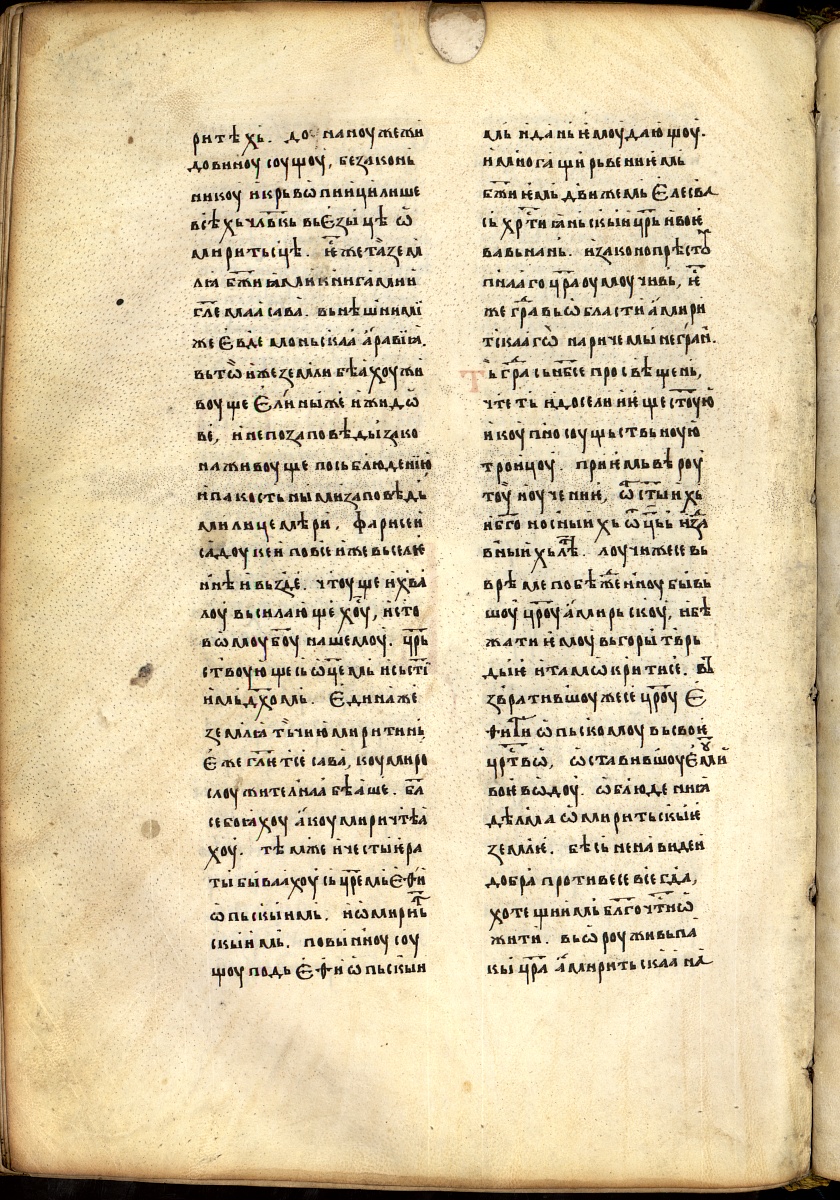 ритѣхь. до наноуже жи
довиноу соущоу, беꙁакон
никоу и крьвѡпиици лише
всѣхь чл҃вкь вь еꙁыцѣ ѡ
миритьсцѣ. ꙗ҆же та ꙁем
лꙗ бж҃иꙗми книгами и
гл҃ема сава. вьнѣшнимї
же ев᾽демоньскаа аравїꙗ.
вь тѡиже ꙁемли бѣахоу жи
воуще ели ныже и жидѡ
ве, и не по ꙁаповѣды ꙁако
на живоуще по сьблюденїю
и пакостьными ꙁаповѣдь
ми лицемѣри, фарисеи
садоукеи по все иже вьселе
ннѣ и вьꙁде. чтоуще и хва
лоу вьсилающе хоу҃, исто
вѡмоу боу҃ нашемоу. цр҃ь
ствоующе сь ѡц҃емь и сь ст҃ї
имь дх҃омь. едина же
ꙁемлꙗ тьчию миритинь
еже гл҃ет се сава, коумиро
слоужителнаа бѣаше. бл
се бо ꙗхоу ꙗкоумири чтѣа
хоу. тѣмже и честыѥ ра
ты бывахоу сь цр҃емь еѳи
ѡпьскыимь. и ѡмирит
скыимь. повынноу соу
щоу подь еѳиѡпьскыи
мь и дань ѥмоу дающоу.
и многащи рьвениемь
бж҃иѥмь движемь елесва
сь хр҃тиꙗньскыи цр҃ь и вое
ва вь нань. и ꙁаконопрѣстоу
пнаго цр҃а оумоучивь, ѥ
же гра҃ вь ѡбласти амири
тскаа гѡ наричемы негран.
ть гра҃ сь нб҃се просвѣщень,
чтеть и доселѣ ѥще стоу҃ю
и коупносоущьствьноую
троицоу. приѥмь вѣроу
тоу и оучении, ѡ ст҃ыихь
и бг҃оносныихь ѡц҃ь иꙁра
вныихь лѣ. лоучи же се вь
врѣме побѣжденноу бывь
шоу цр҃оу амирьскоу, и бѣ
жати ѥмоу вь горы тврь
дыѥ и тамѡ крити се. вь
ꙁвративш​оу же се цр҃оу е
ѳиѡпьскомоу вь свое
цр҃твѡ, ѡставившоу емоу и
вое вѡдоу. ѡблюдениꙗ
дѣлма ѡмиритьскыѥ
ꙁемлѥ. бѣсь ненавидеи
добра противе се всегда,
хотещиимь бл҃гочт҃нѡ
жити. вьѡроужи вь па
кы цр҃а амиритьскаа на